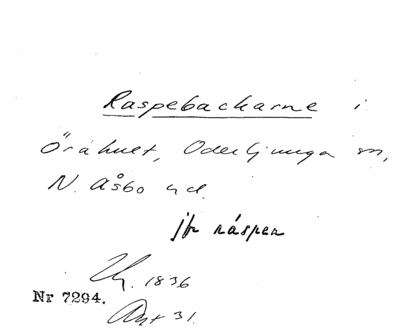 Raspebackarne i
Örahult, Oderljunga sn,
N. Åsbo hd.
jfr råspen
1836
Nr 7294.
31.